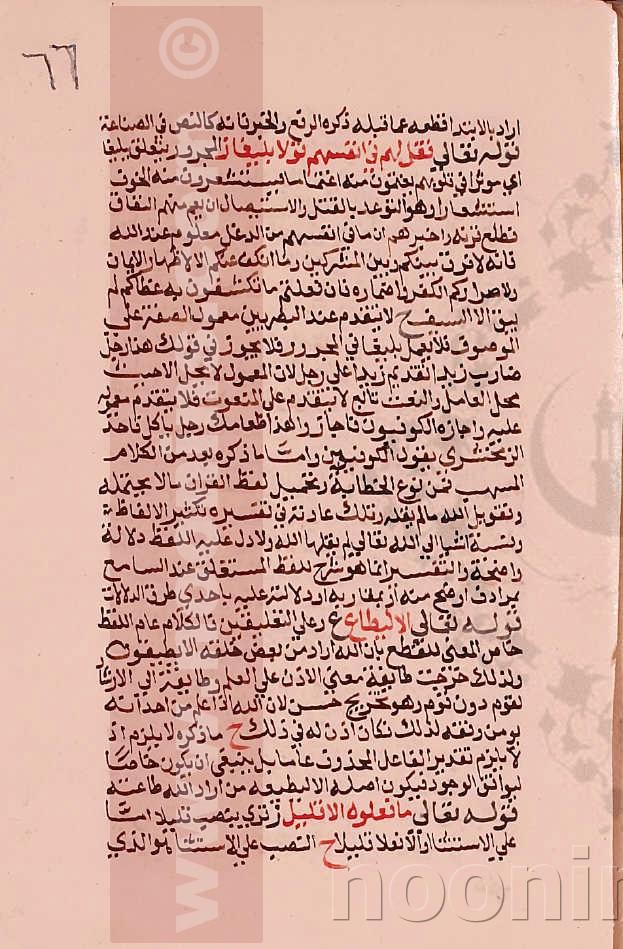 ٦٦
اراد بالابتدا قطعه عما قبله ذكره الرفع والخبر ثاته كالنص في الصناعة
قوله تعالي فقل لهم في انفسهم قولا بليغا ز المجرور يتعلق بليغا
اي موثرا في قلوبهم يغتمون منه اغتماما ويستشعرون منه الخوف
استشعارا وهو التوعد بالقتل والاستيصال ان نجم منهم النفاق
واطلع قرنه واخبرهم ان ما في انفسهم من الدغل معلوم عند الله
فانه لا فرق بينكم وبين المشركين وما انكف عنكم الا لاظهار الايمان
واصراركم الكفر واضماره فان فعلتم ما تكشفون به غطاكم لم
يبق الا السيف ح لا يتقدم عند البصريين معمول الصفة علي
الموصوف فلا يعمل بليغا في المجرور فلا يجوز في قولك هذا رجل
ضارب زيدا تقديم زيدا علي رجل لان المعمول لا يحل الا حيث
محل العامل والنعت تابع لا يتقدم علي المنعوت فلا يتقدم معموله
عليه واجازه الكوفيون فاجازوا هذا طعامك رجل ياكل فاخذ
الزمخشري بقول الكوفيين واما ما ذكره بعد من الكلام
المسهب فمن نوع الخطابة وتحميل لفظ القران ما لا يحتمله
وتقويل الله ما لم يقله وتلك عادته في تفسيره تكثير الالفاظ
ونسبة اشيا الي الله تعالي لم يقلها الله ولا دل عليه اللفظ دلالة
واضحة والتفسير انما هو شرح للفظ المستغلق عند السامع
بمرادف اوضح منه او بمقاربه او دلالته عليه باحدي طرق الدلالات
قوله تعالي الا ليطاع ع وعلي التعليقين فالكلام عام اللفظ
خاص المعني للقطع بان الله اراد من بعض خلقه الا يطيعون
ولذلك خرجت طايفة معني الاذن علي العلم وطايفة الي الارشاد
لقوم دون قوم وهو تخريج حسن لان الله اذا علم من احد انه
يومن وفقه لذلك فكان اذن له في ذلك ح ما ذكره لا يلزم اذ
لا يلزم تقدير الفاعل المحذوف عاما بل ينبغي ان يكون خاصا
ليوافق الوجود فيكون اصله الا ليطيعه من اراد الله طاعته
قوله تعالي ما فعلوه الا قليل ز قري بنصب قليلا اما
علي الاستثنا او الا فعلا قليلا ح النصب علي الاستثنا هو الذي
© www.
noonin